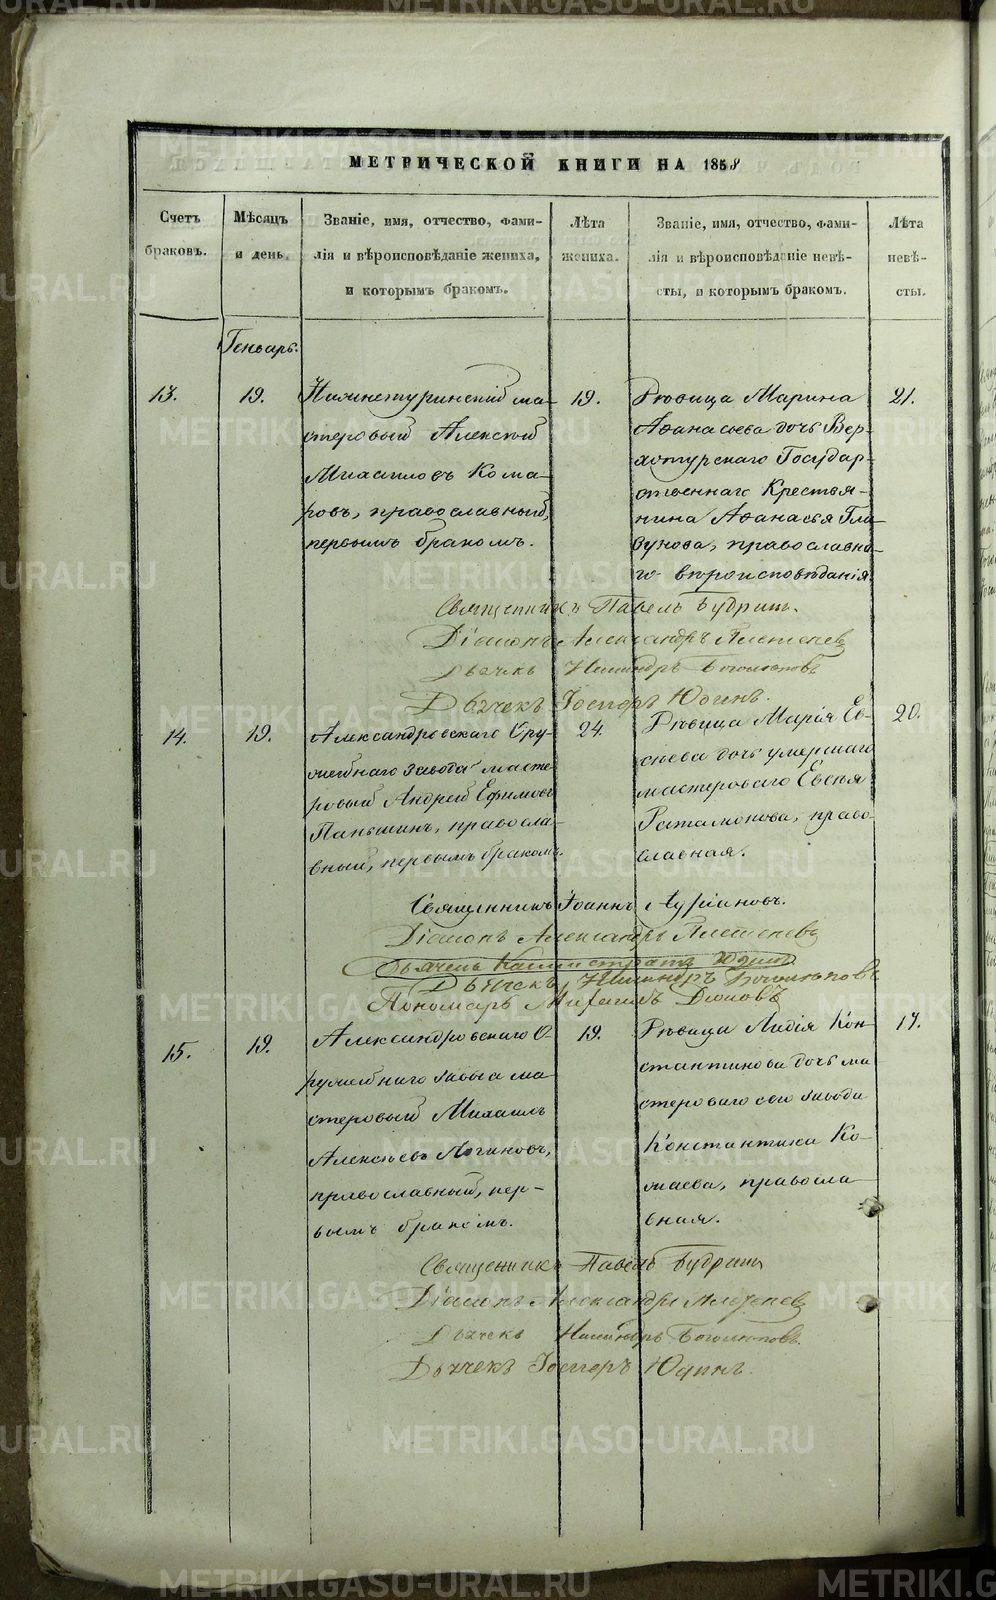 МЕТРИЧЕСКОЙ КНИГИ НА 1858
Счетъ браковъ.
Мѣсяцъ и день.
Званіе, имя, отчество, фами-
лія и вѣроисповѣданіе жениха,
и которымъ бракомъ.
Лѣта жениха.
Званіе, имя, отчество, фами-
лія и вѣроисповѣданіе невѣ-
сты, и которымъ бракомъ.
Лѣта невѣ-
сты.
Геньварь.
13.
19.
Нижнетуринскій ма-
стеровый Алексѣй
Михаиловъ Кома-
ровъ, православный,
первымъ бракомъ.
19.
Дѣвица Марина
Аѳанасьева дочь Вер-
хотурскаго Государ-
ственнаго Крестья-
нина Аѳанасья Гла-
зунова, православна-
го вѣроисповѣданія.
21.
Священникъ Павелъ Будринъ.
Діаконъ Александръ
Дьячекъ Никандръ Боголюповъ
Дьячекъ Юдинъ.
14.
19.
Александровскаго Ору-
жейнаго завода масте-
ровый Андрей Ефимовъ
Паньшинъ, правосла-
вный, первымъ бракомъ.
24.
Дѣвица Марія Ев-
сѣева дочь умершаго
мастероваго Евсѣя
православная.
20.
Священникъ Іоаннъ
Діаконъ Александръ
Дьячекъ Каллистратъ Юдинъ
Дьячекъ Никандръ Боголюповъ
Пономарь Михаилъ
15.
19.
Александровскаго О-
ружейнаго завода ма-
стеровый Михаилъ
Алексѣевъ Логиновъ,
православный, пер-
вымъ бракомъ.
19.
Дѣвица Лидія Кон-
стантинова дочь ма-
стероваго сего завода
Константина
правосла-
вная.
17.
Священникъ Павелъ Будринъ
Діаконъ Александръ
Дьячекъ Никандръ Боголюповъ.
Дьячекъ Юдинъ.
METRIKI.GASO-URAL.RU